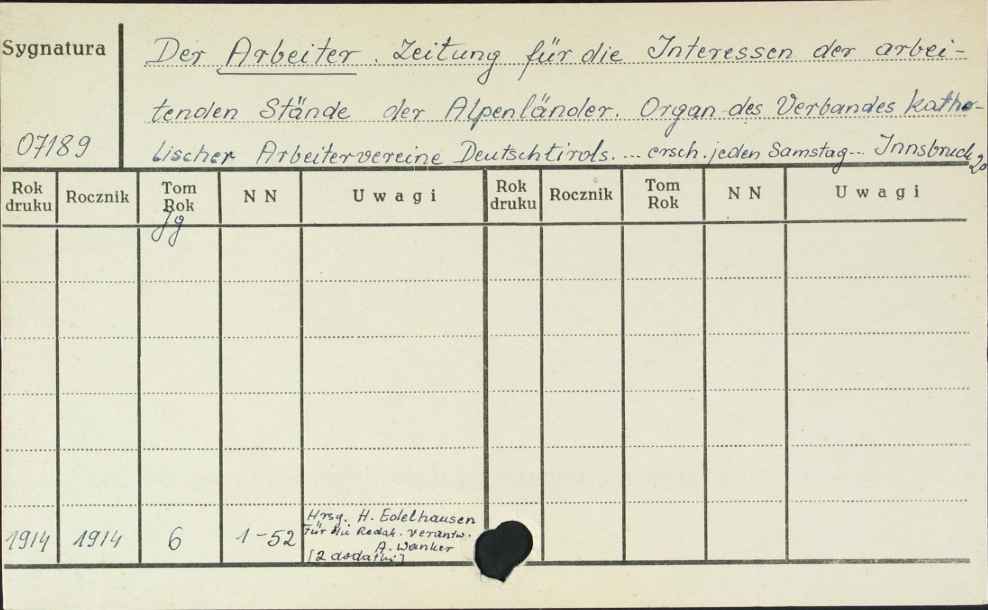 Sygnatura
07189
Der Arbeiter. Zeitung für die Interessen der arbei-
tenden Stände der Alpenländer. Organ des Verbandes katho-
lischer Arbeitervereine Deutschtirols. ... ersch. jeden Samstag... Innsbruck 2°
Rok druku Rocznik Tom Rok Jg N N Uwagi Rok druku Rocznik Tom Rok N N Uwagi
1914 1914 6 1-52 Hrsg. H. Edelhausen
Für die Redak. verantw.
A. Wanker
[2 dodatki]